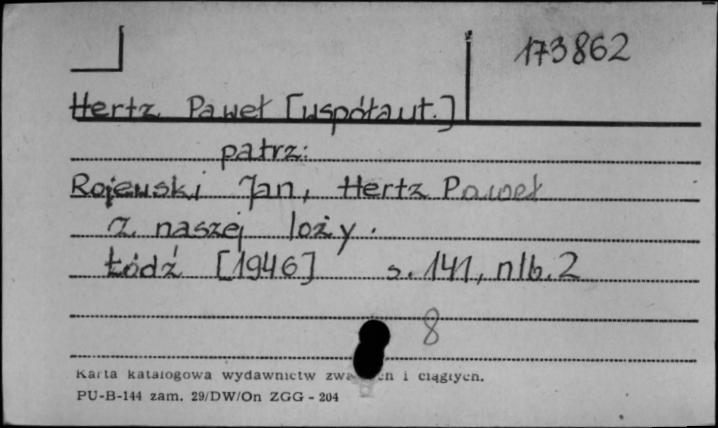 173862
Hertz Paweł [współaut.]
patrz:
Rojewski Jan, Hertz Paweł
Z naszej loży.
Łódź [1946] s. 141, nlb. 2
8
Karta katalogowa wydawnictw i ciągłych.
PU-B-144 zam. 29/DW/On ZGG - 204